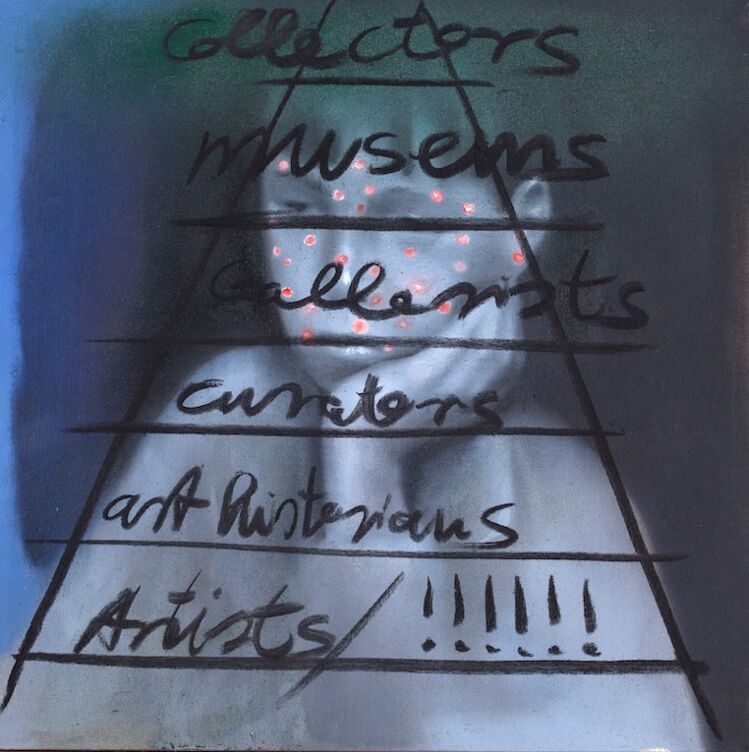 Collectors
musems
Gallerists
curators
art Historians
Artists/ !!!!!!